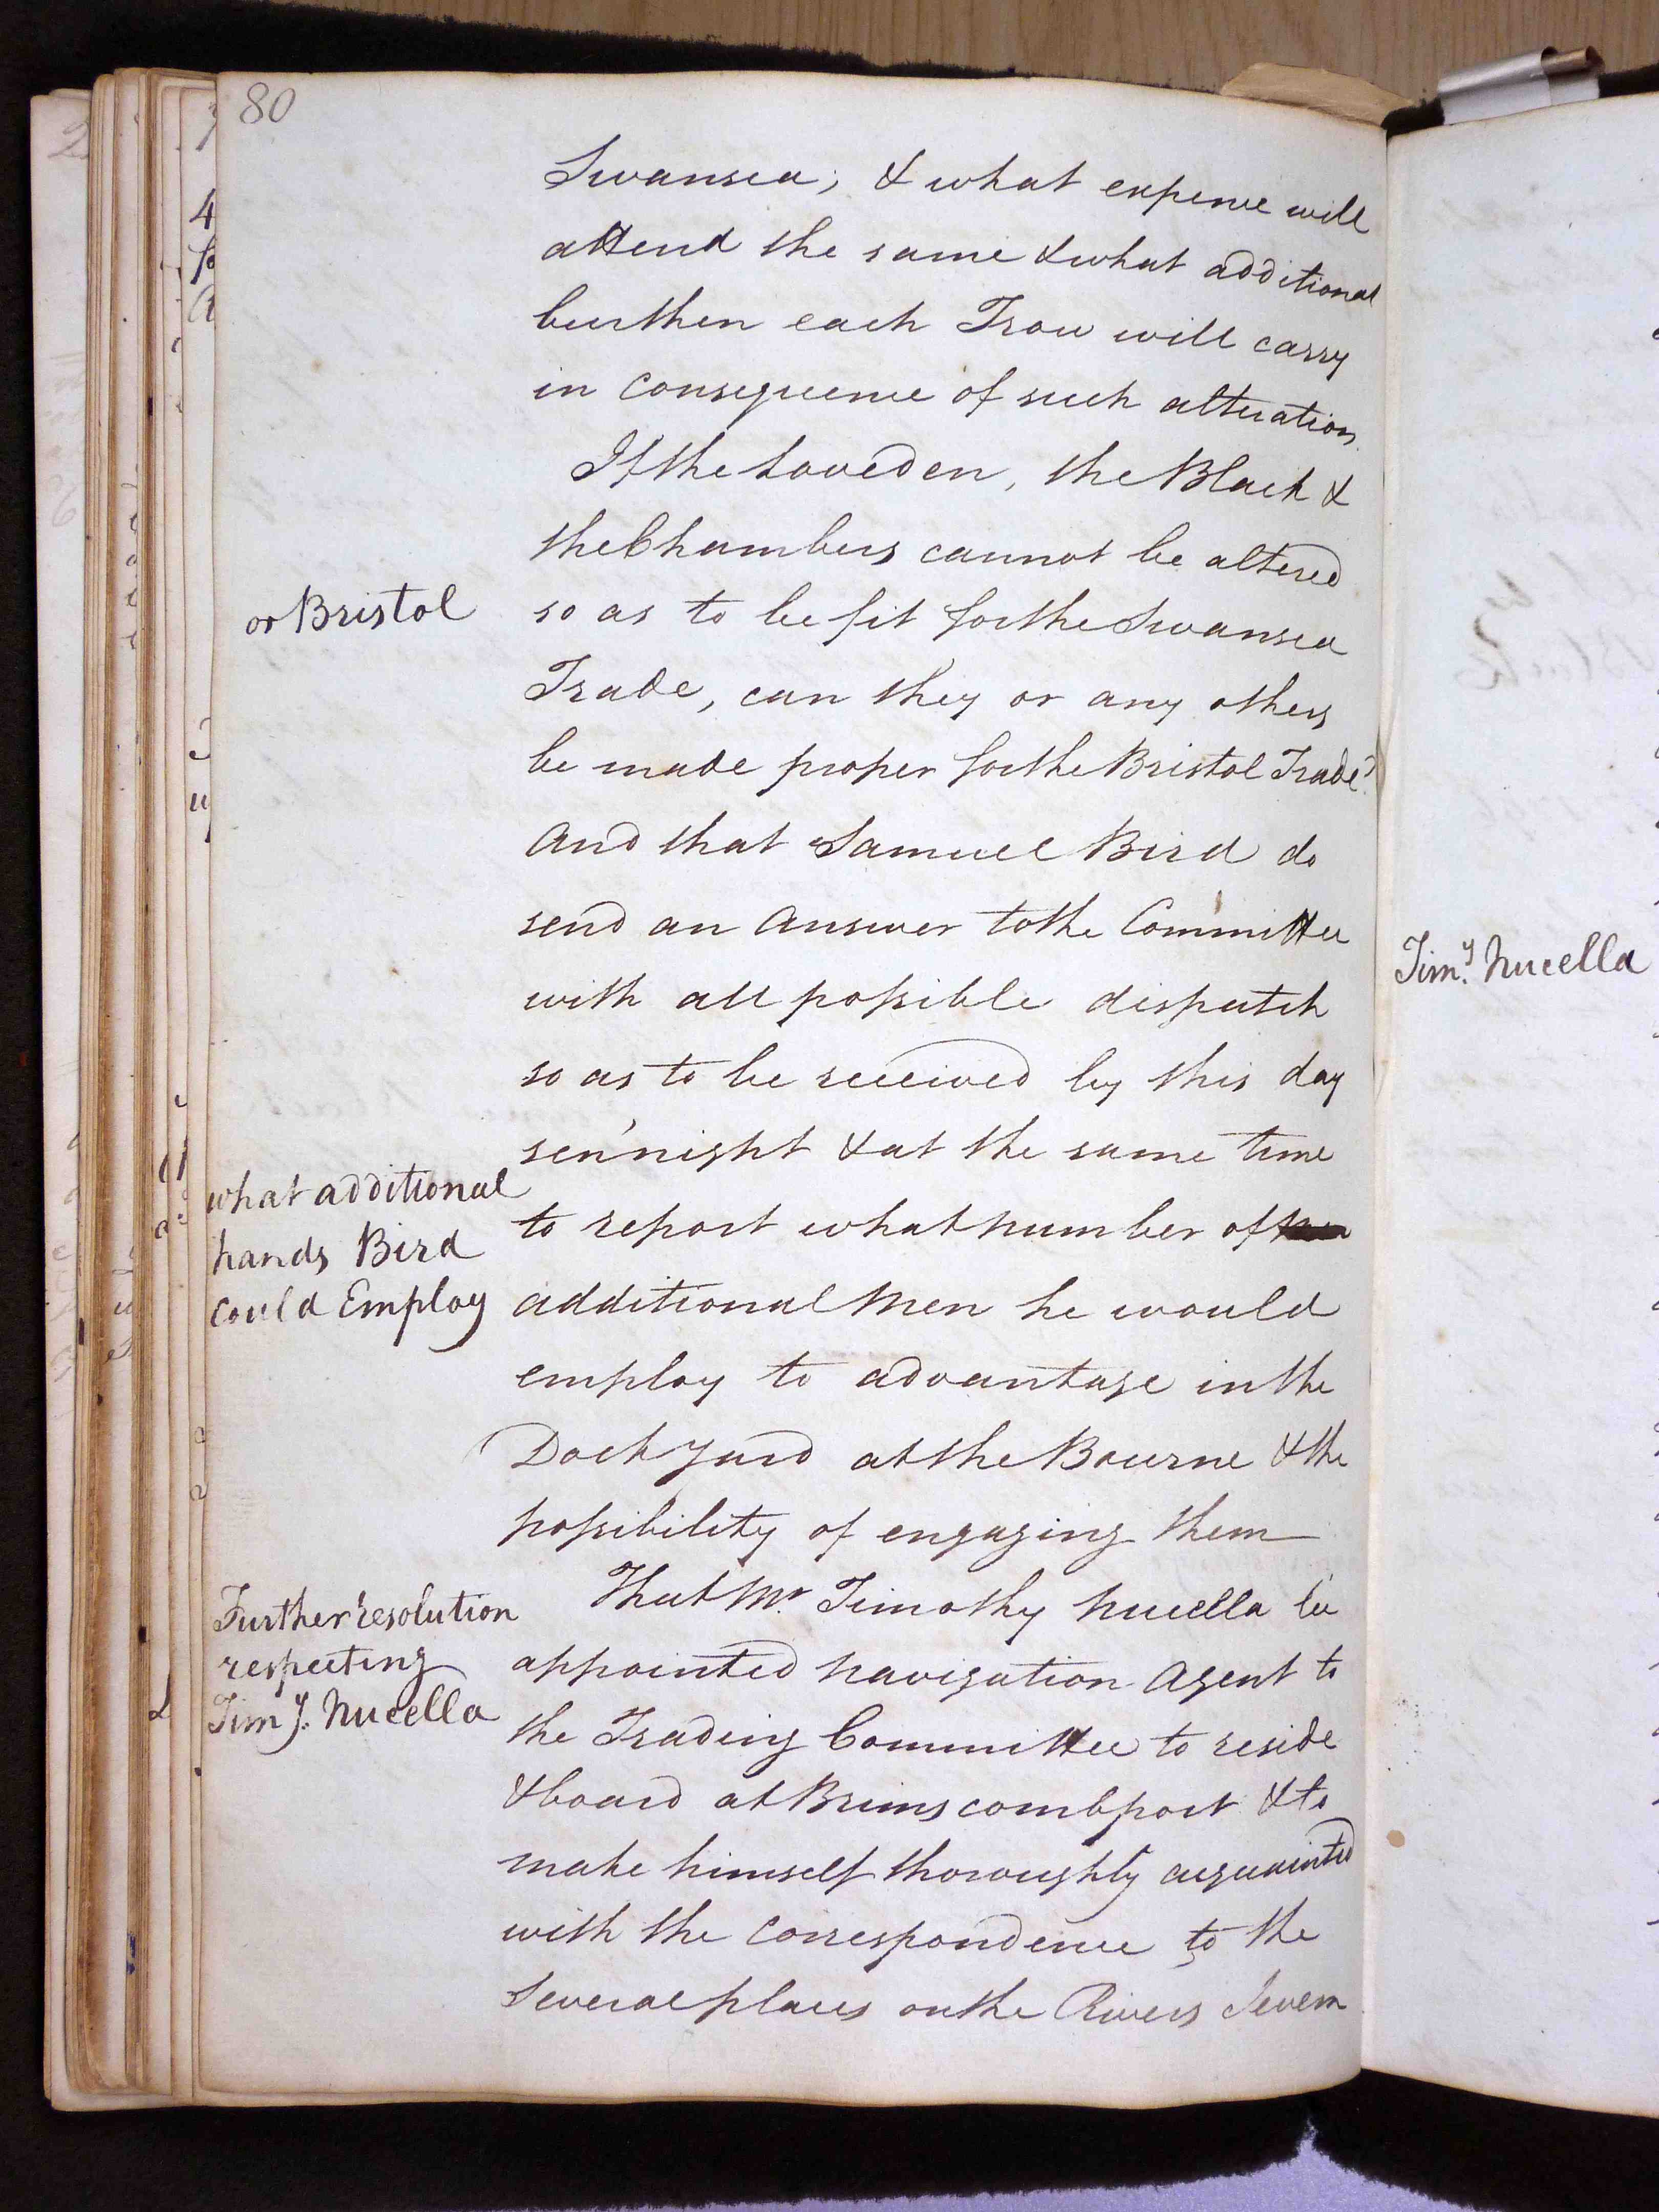 80
Swansea; & what expence will
attend the same & what additional
burthen each Trow will carry
in Consequence of such alteration
If the Loveden, the Black &
the Chambers cannot be altered
or Bristol
so as to be fit for the Swansea
Trade, can they or any others
be made proper for the Bristol Trade?
And that Samuel Bird do
send an Answer to the Committee
with all possible dispatch
so as to be received by this day
sen'night & at the same time
what additional
hands Bird
could Employ
to report what number of
additional Men he would
employ to advantage in the
Dock Yard at the Bourne & the
possibility of engaging them
Further resolution
respecting
Timy. Nucella
That Mr. Timothy Nucella be
appointed Navigation Agent to
the Trading Committee to reside
& board at Brimscomb port & to
make himself thoroughly acquainted
with the Correspondence to the
Several places on the Rivers Severn
Timy. Nucella